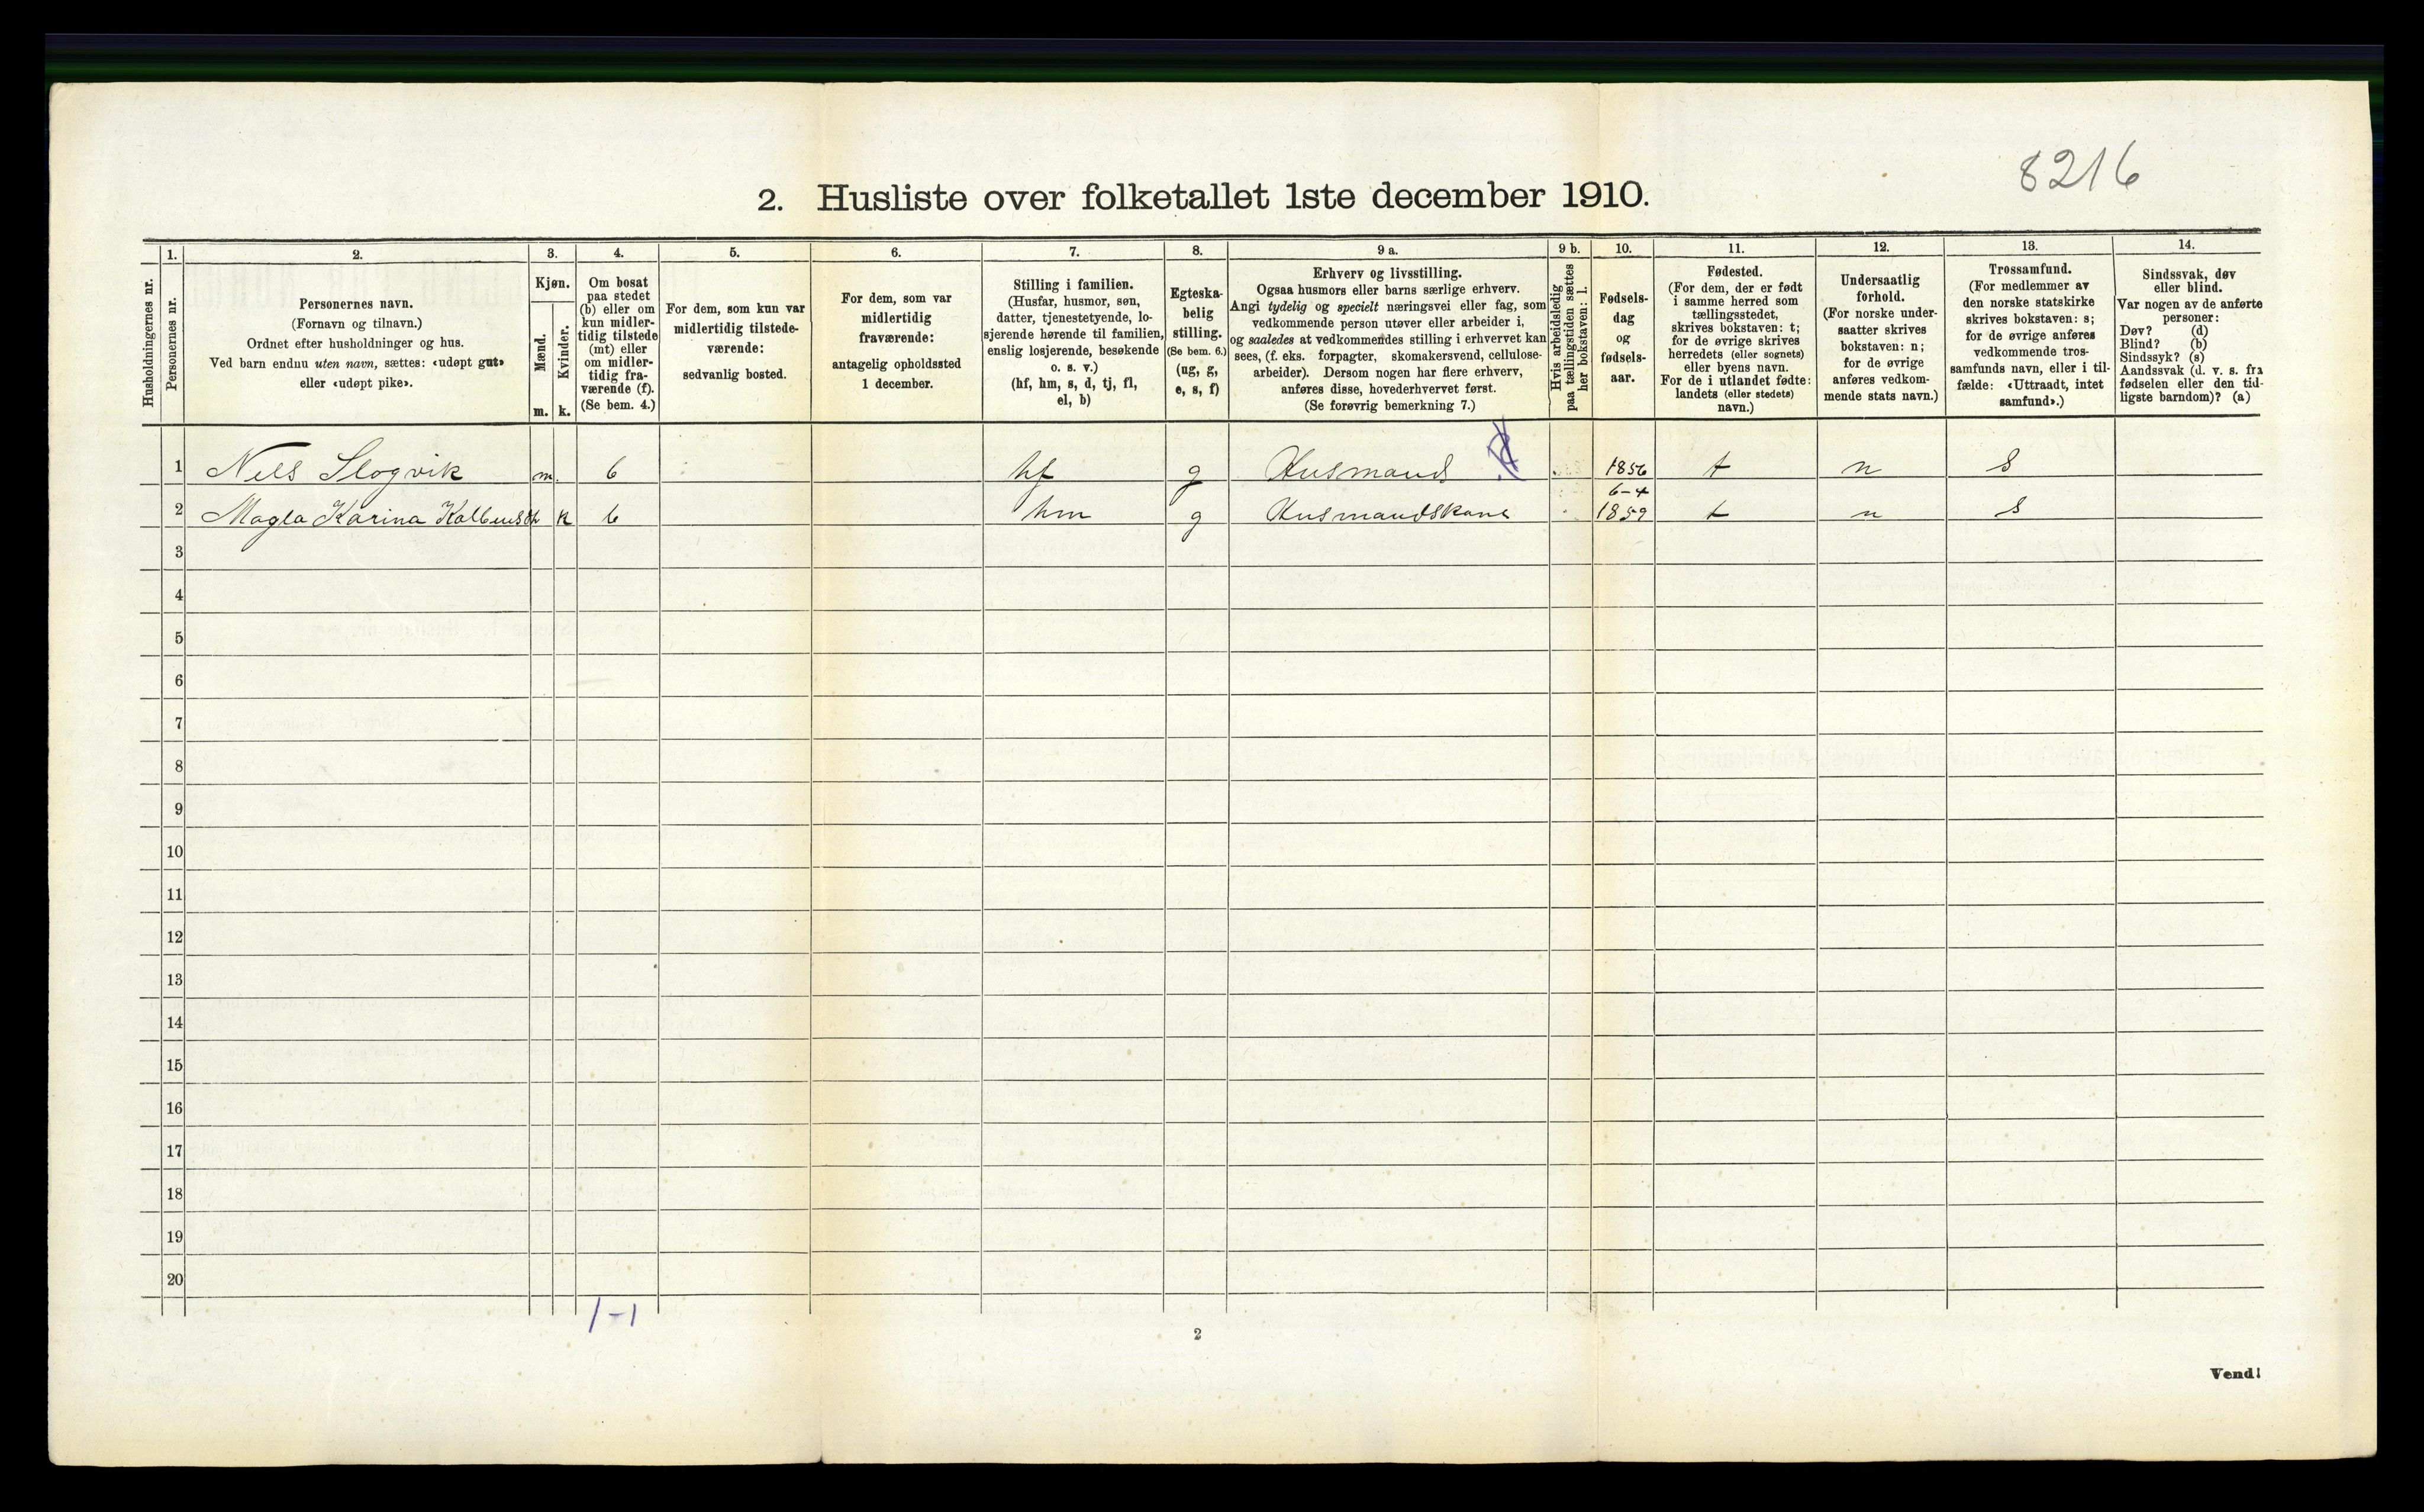 8216
2. Husliste over folketallet 1ste december 1910.
Husholdningernes nr.
1.
Personernes nr.
2.
Personernes navn.
(Fornavn og tilnavn.)
Ordnet efter husholdninger og hus.
Ved barn endnu uten navn, sættes: «udøpt gut»
eller «udøpt pike».
3.
Kjøn.
Mænd.
m.
Kvinder.
k.
4.
Om bosat
paa stedet
(b) eller om
kun midler-
tidig tilstede
(mt) eller
om midler-
tidig fra-
værende (f).
(Se bem. 4.)
5.
For dem, som kun var
midlertidig tilstede-
værende:
sedvanlig bosted.
6.
For dem, som var
midlertidig
fraværende:
antagelig opholdssted
1 december.
7.
Stilling i familien.
(Husfar, husmor, søn,
datter, tjenestetyende, lo-
sjerende hørende til familien,
enslig losjerende, besøkende
o. s. v.)
(hf, hm, s, d, tj, fl,
el, b)
8.
Egteska-
belig
stilling.
(Se bem. 6.)
(ug, g,
e, s, f)
9 a.
Erhverv og livsstilling.
Ogsaa husmors eller barns særlige erhverv.
Angi tydelig og specielt næringsvei eller fag, som
vedkommende person utøver eller arbeider i,
og saaledes at vedkommendes stilling i erhvervet kan
sees, (f. eks. forpagter, skomakersvend, cellulose-
arbeider). Dersom nogen har flere erhverv,
anføres disse, hovederhvervet først.
(Se forøvrig bemerkning 7.)
9 b.
Hvis arbeidsledig
paa tællingstiden sættes
her bokstaven: l.
10.
Fødsels-
dag
og
fødsels-
aar.
11.
Fødested.
(For dem, der er født
i samme herred som
tællingsstedet,
skrives bokstaven: t;
for de øvrige skrives
herredets (eller sognets)
eller byens navn.
For de i utlandet fødte:
landets (eller stedets)
navn.)
12.
Undersaatlig
forhold.
(For norske under-
saatter skrives
bokstaven: n;
for de øvrige
anføres vedkom-
mende stats navn.)
13.
Trossamfund.
(For medlemmer av
den norske statskirke
skrives bokstaven: s;
for de øvrige anføres
vedkommende tros-
samfunds navn, eller i til-
fælde: «Uttraadt, intet
samfund».)
14.
Sindssvak, døv
eller blind.
Var nogen av de anførte
personer:
Døv? (d)
Blind? (b)
Sindssyk? (s)
Aandssvak (d. v. s. fra
fødselen eller den tid-
ligste barndom)? (a)
1 Nels Slogvik m. b hf g Husmand 1856 t n s
6-4
2 Magla Karina k b hm g Husmandskone 1859 t n s
3
4
5
6
7
8
9
10
11
12
13
14
15
16
17
18
19
20
1-1
2
Vend!